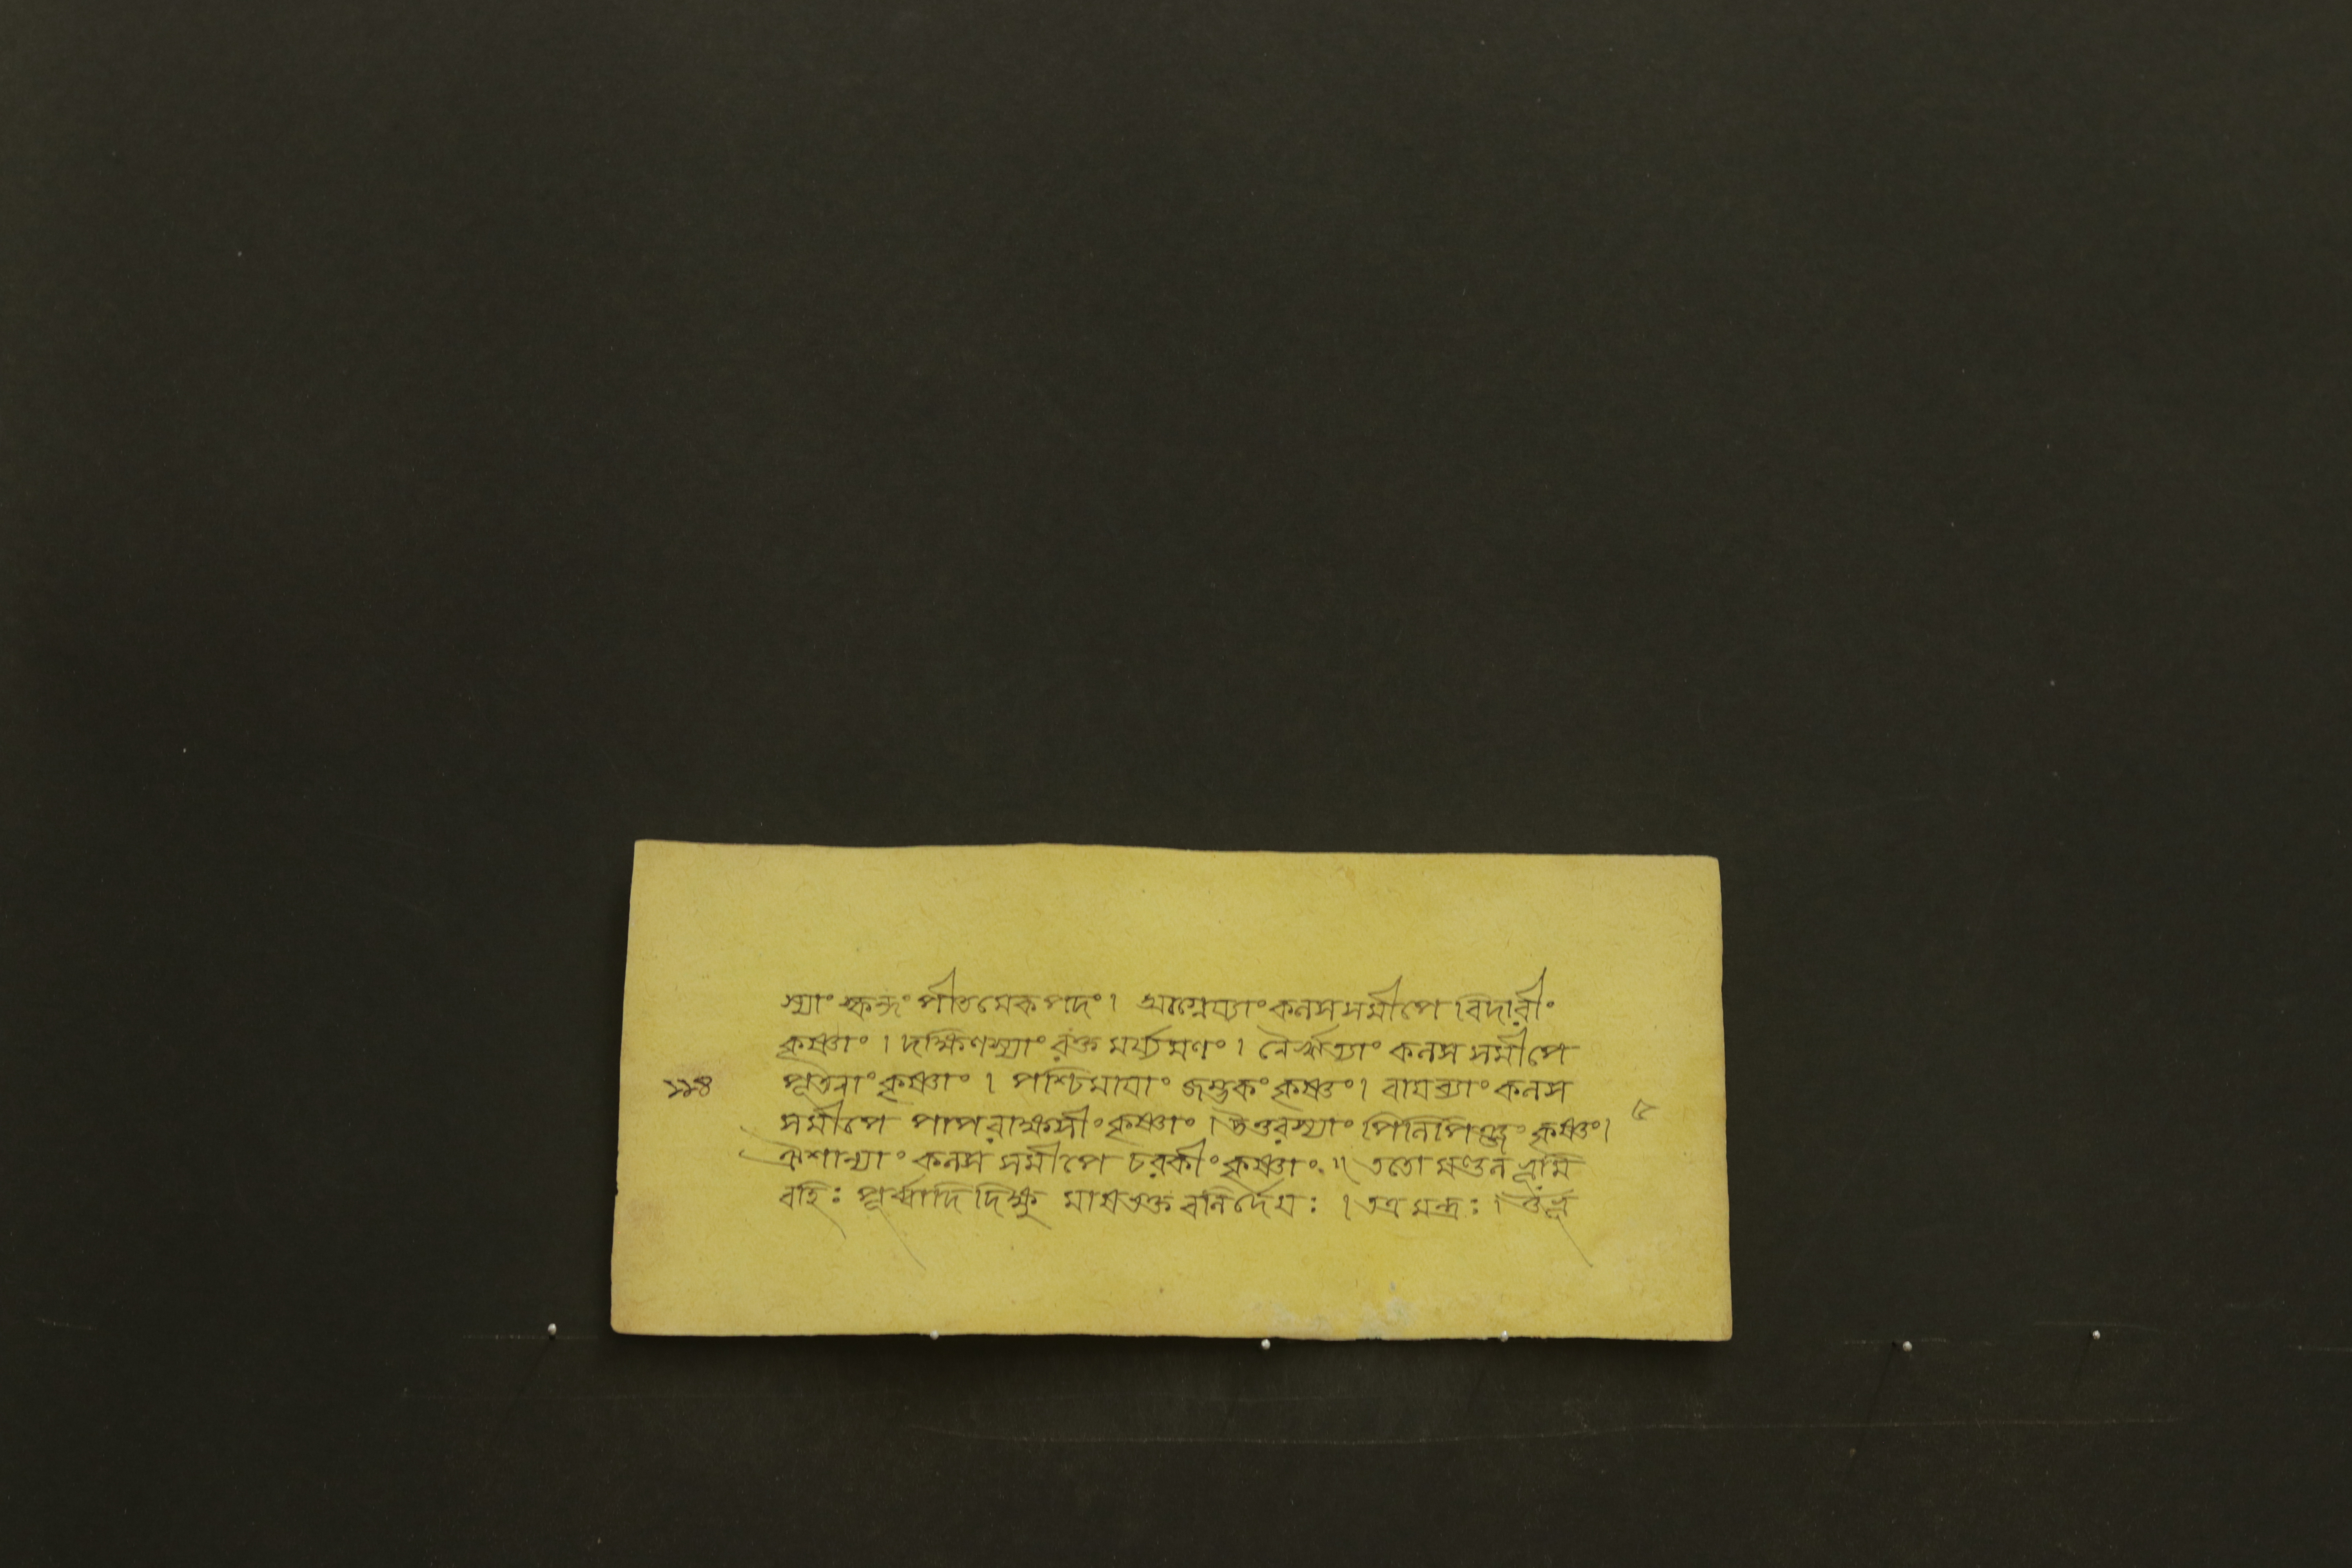 স্যাং স্কন্দং পীতমেকপদং। আগ্নেয্যাং কলস সমীপে বিদারীং
কৃষ্ণাং। দক্ষিণস্যাং রক্তমর্য্যমণং। নৈর্ঋত্যাং কলস সমীপে
১১৪ পূতনাং কৃষ্ণাং। পশ্চিমাযাং জম্ভকং কৃষ্ণং। বাযব্যাং কলস
সমীপে পাপরাক্ষসীং কৃষ্ণাং। উত্তরস্যাং পিলিপিঞ্জং কৃষ্ণং। ৫
ঐশান্যাং কলস সমীপে চরকীং কৃষ্ণাং॥ ততো মণ্ডল
বহিঃ পূর্ব্বাদি দিক্ষু মাষভক্ত বলির্দেযঃ। তত্র মন্ত্রঃ।